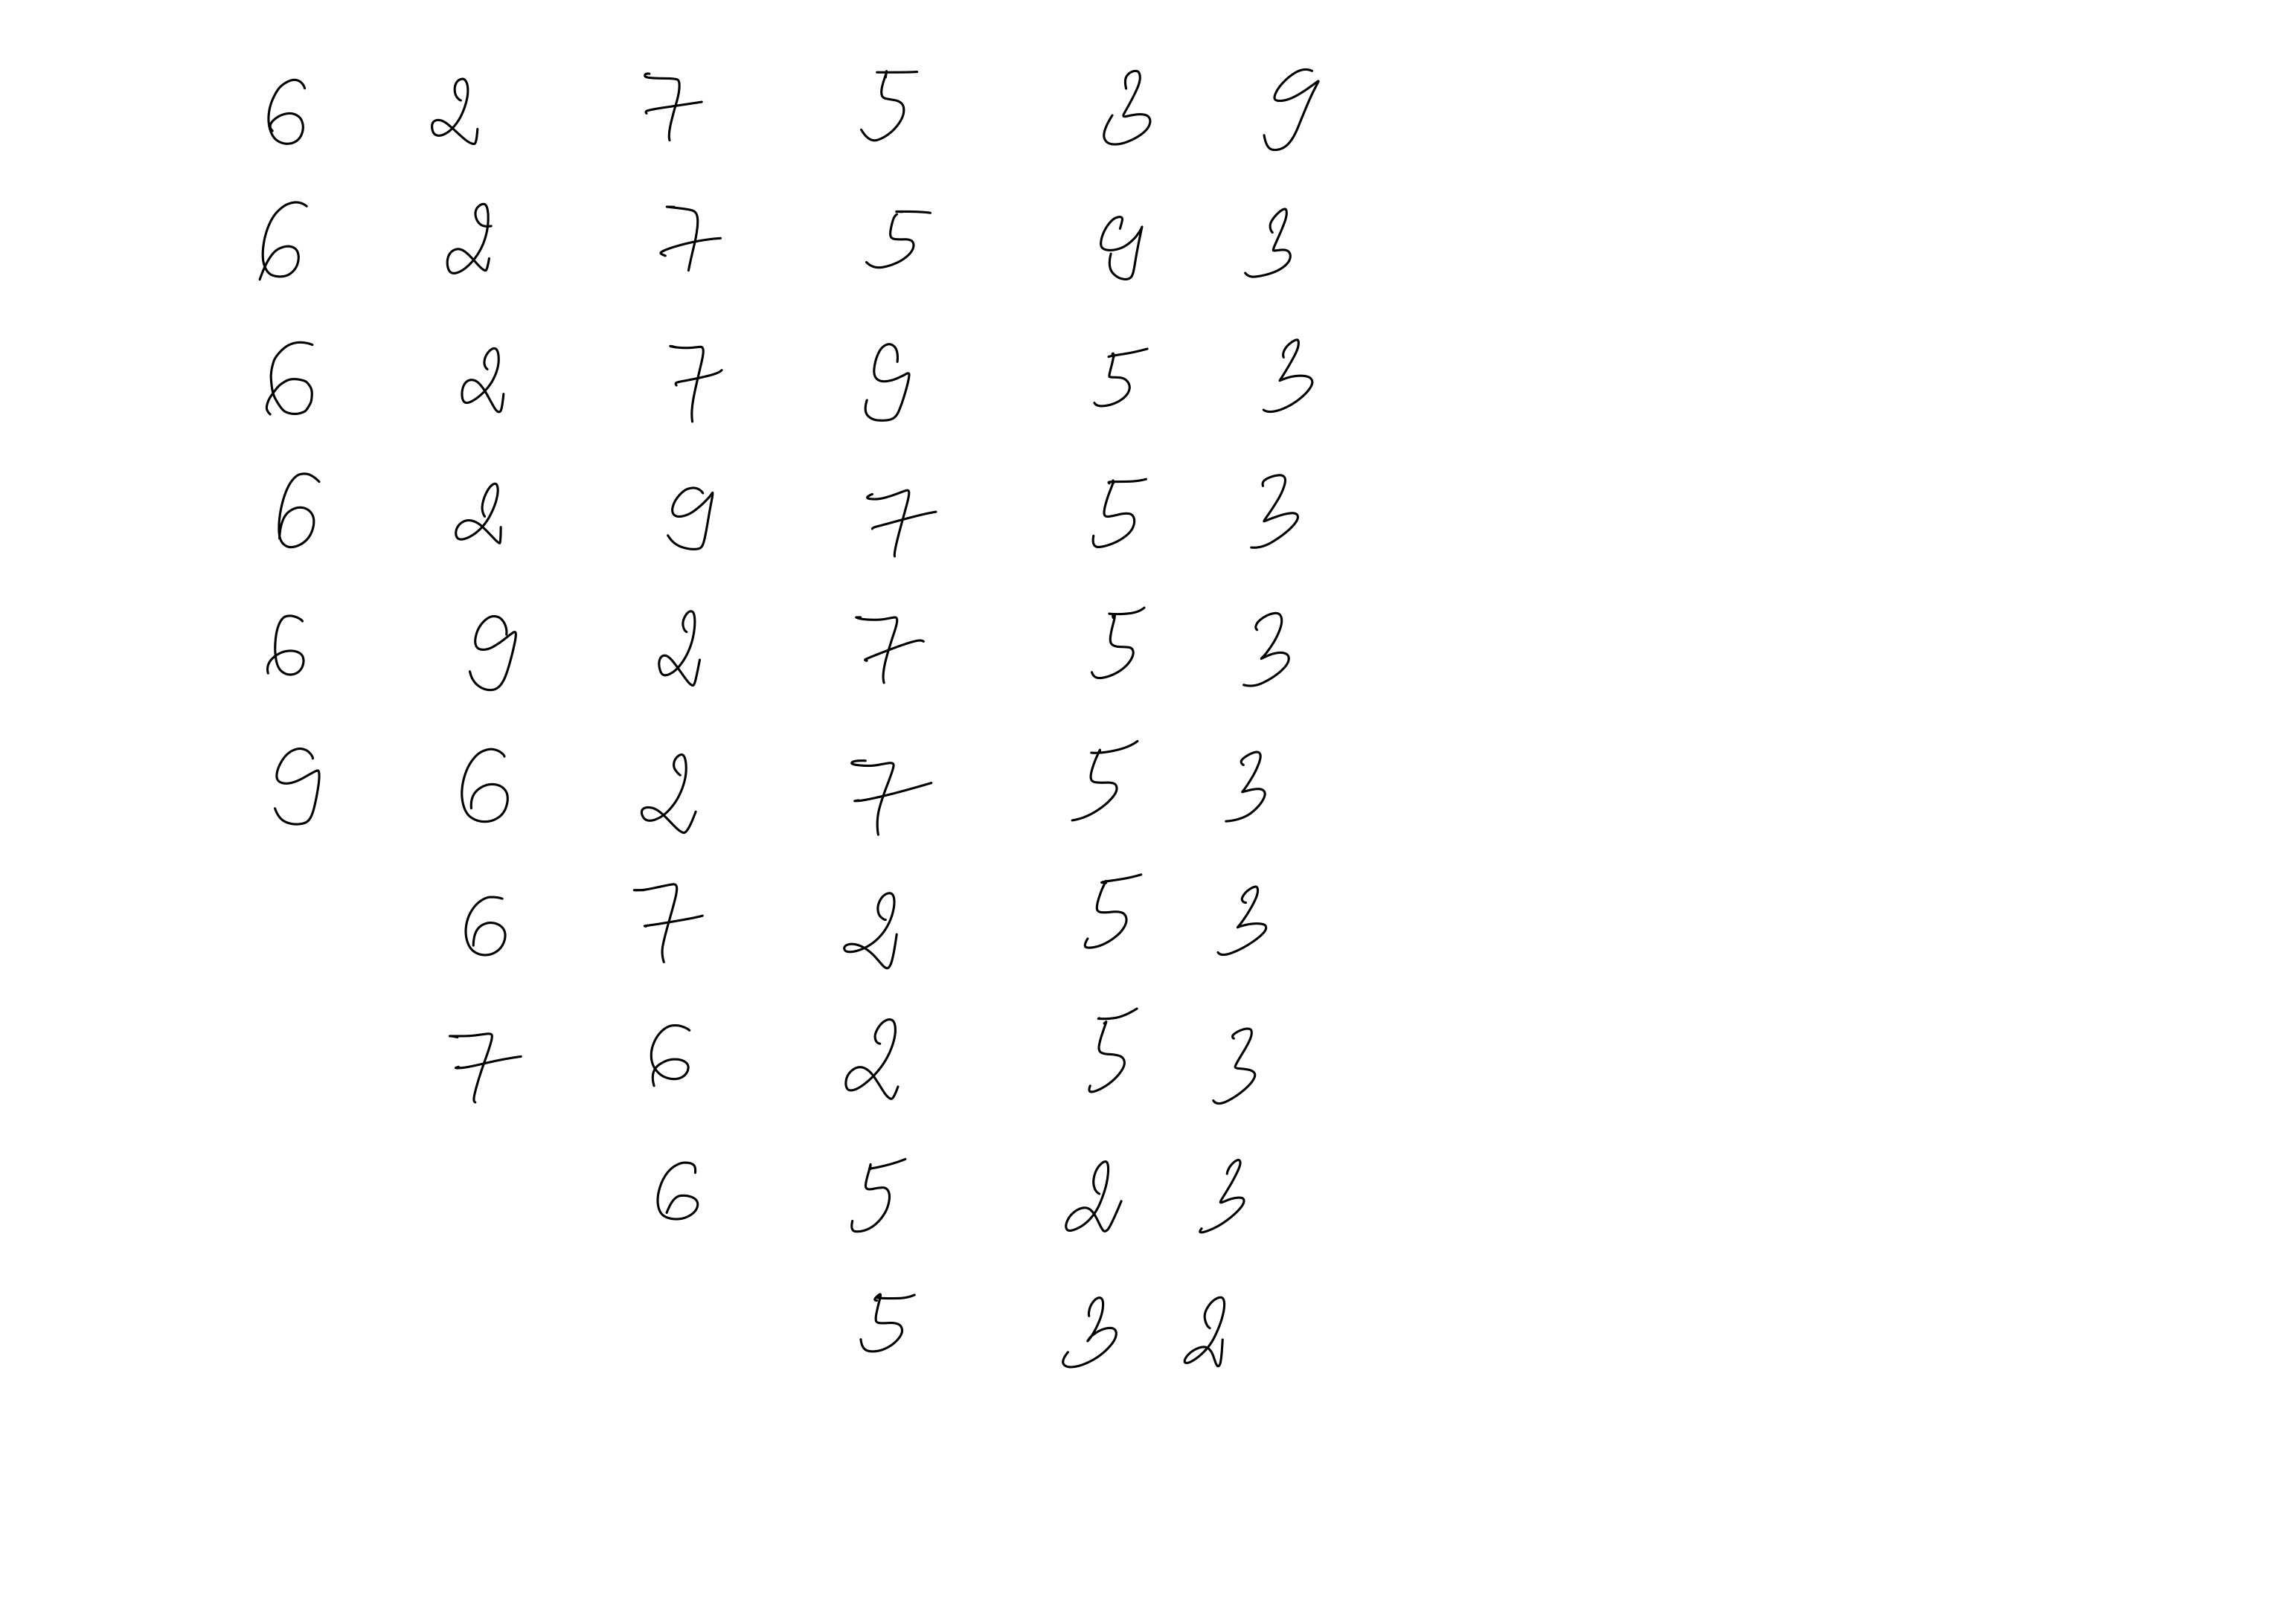 6 2 7 5 3 9
6 2 7 5 9 3
6 2 7 9 5 3
6 2 9 7 5 3
6 9 2 7 5 3
9 6 2 7 5 3
6 7 2 5 3
7 6 2 5 3
6 5 2 3
5 3 2